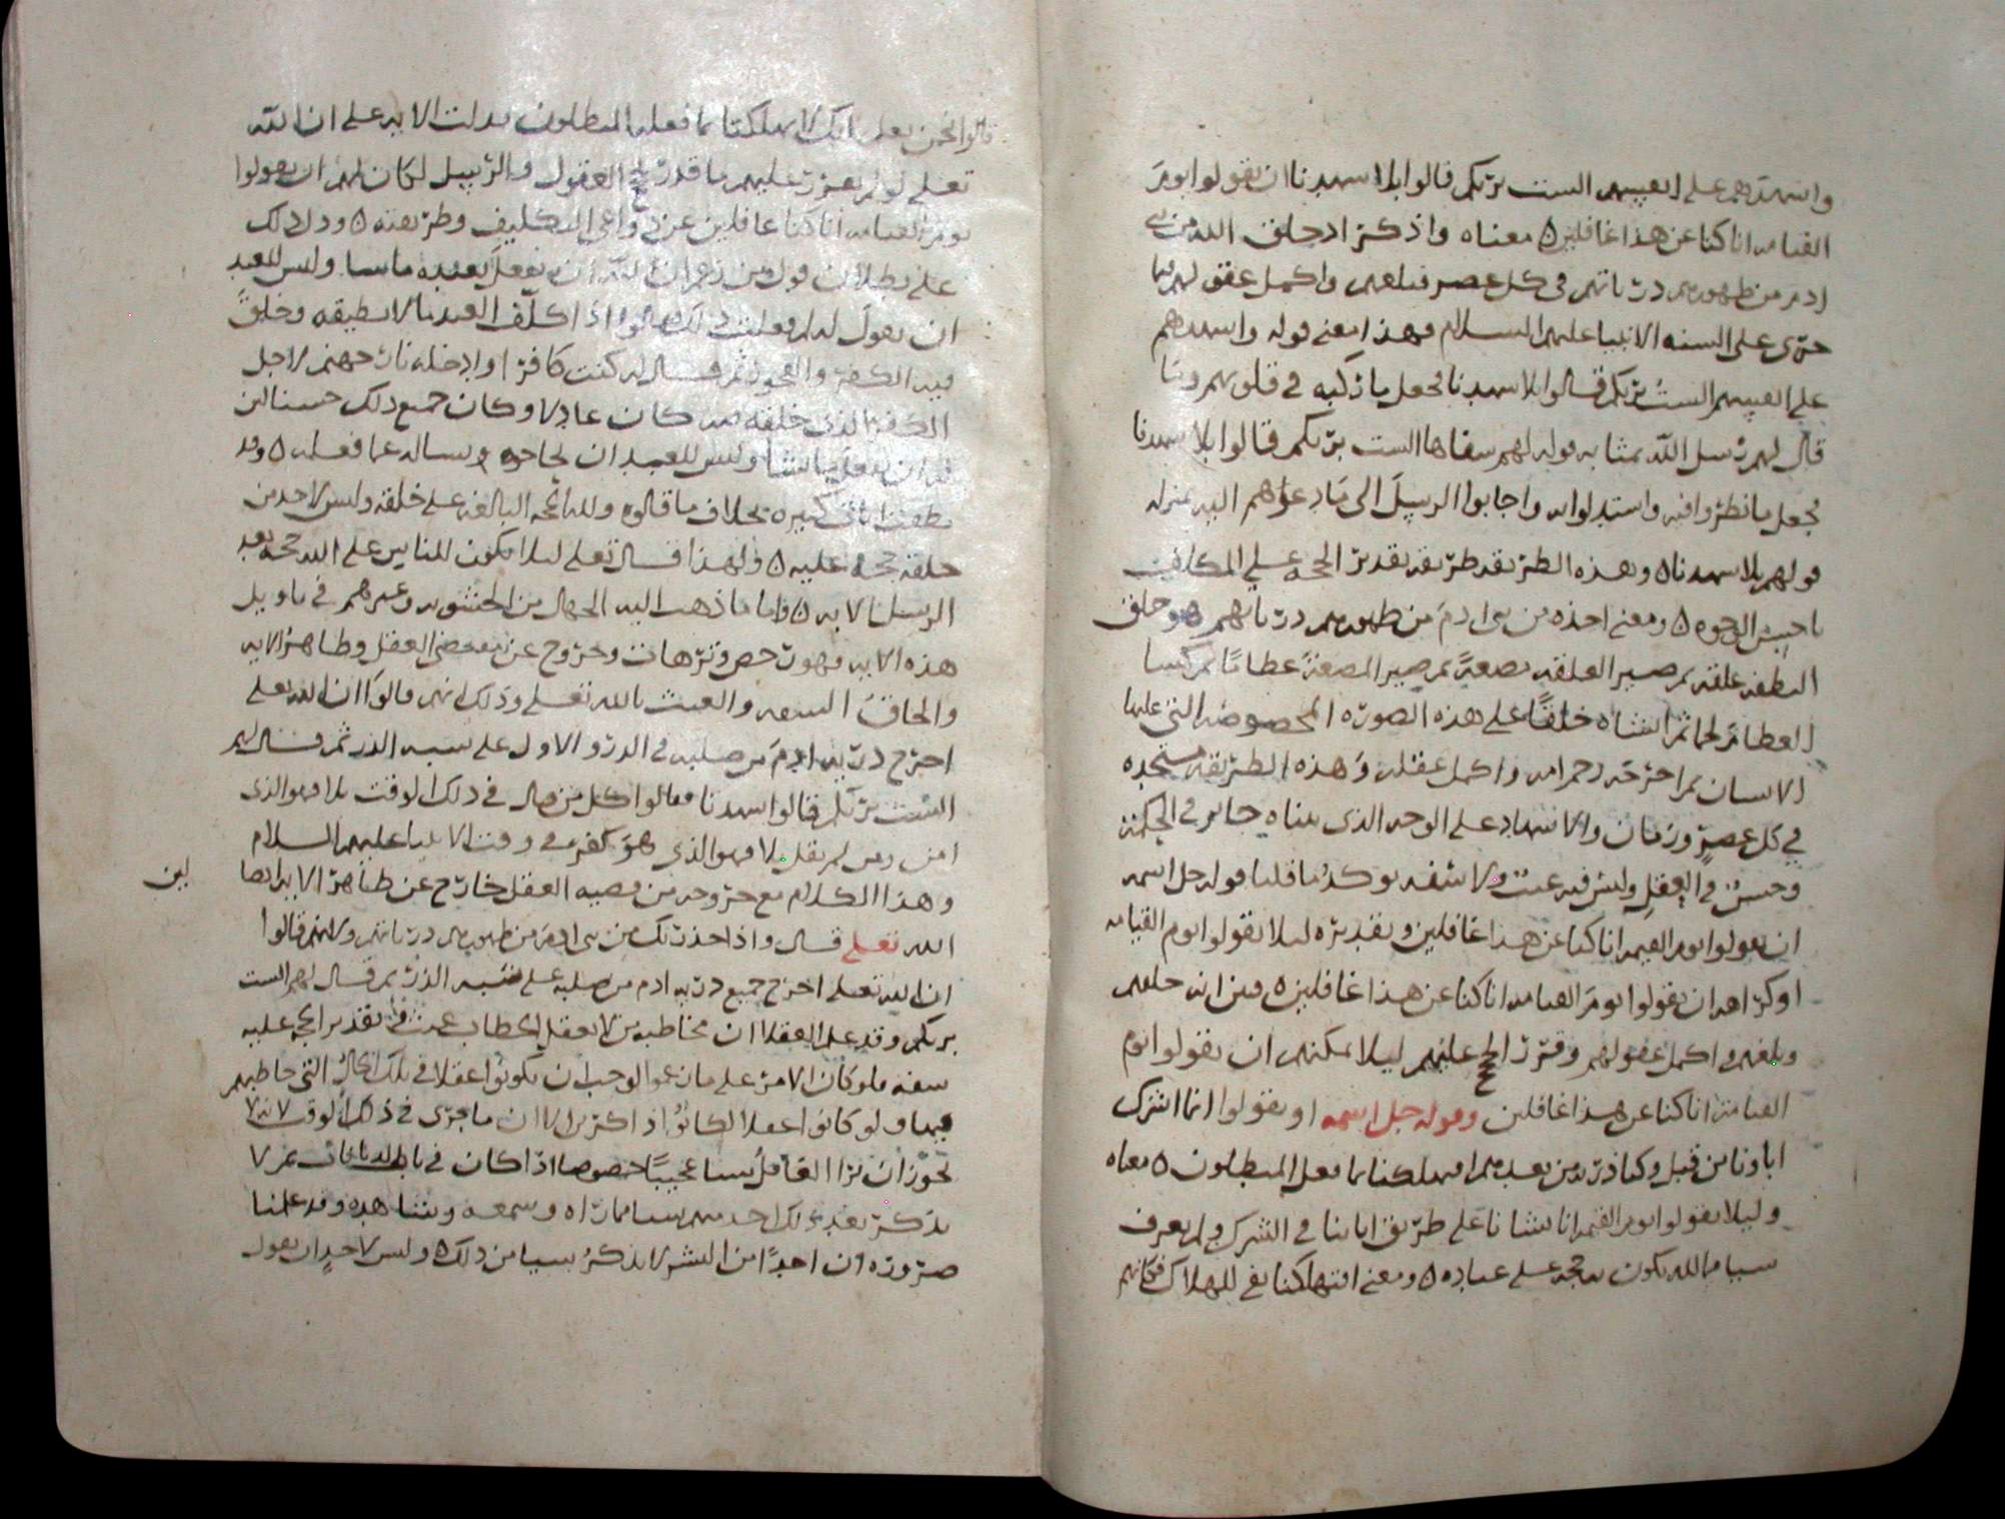 واشهدهم على انفسهم الست بربكم قالوا بلا شهدنا ان يقولوا يوم
القيامه انا كنا عن هذا غافلين ٥ معناه واذكر اذ خلق الله من بني
ادم من ظهورهم درياتهم في كل عصر فبلغهم واكمل عقولهم بما
جرى على السنه الانبيا عليهم السلام فهذا معنى قوله واشهدهم
على انفسهم الست بربكم قالوا بلا شهدنا فجعل ما ركبه في قلوبهم وما
قال لهم رسل الله بمثابه قوله لهم شفاها الست بربكم قالوا بلا شهدنا
فجعل ما نظروا فيه واستدلوا به واجابوا الرسل الى ما دعوهم اليه بمنزله
قولهم بلا شهدنا ٥ وهذه الطريقه طريقه تقدير الحجه على المكلفين
باحسن الوجوه ٥ ومعنى اخذه من بني ادم من ظهورهم درياتهم هو خلق
النطفه علقه ثم صير العلقه مضغة ثم صير المضغة عظاما ثم كسا
العظام لحما ثم انشاه خلقا على هذه الصوره المخصوصه التي عليها
الانسان ثم اخرجه رحم امه واكمل عقله وهذه الطريقه مستجده
في كل عصر وزمان والاشهاد على الوجه الذي بيناه جايز في الحكمة
وحسن في العقل وليس فيه عبث ولا سفه يوكد ما قلنا قوله جل اسمه
ان يقولوا يوم القيمه انا كنا عن هذا غافلين وتقديره ليلا يقولوا يوم القيامه
او كراهه ان يقولوا يوم القيامه انا كنا عن هذا غافلين ٥ فبين انه خلقهم
وبلغهم واكمل عقولهم وقرر الحجج عليهم ليلا يمكنهم ان يقولوا يوم
القيامة انا كنا عن هذا غافلين وقوله جل اسمه او يقولوا انما اشرك
اباونا من قبل وكنا ذريه من بعدهم افتهلكنا بما فعل المبطلون ٥ معناه
وليلا يقولوا يوم القيمه انا نشانا على طريق اباينا في الشرك ولم يعرف
سيا مما لله يكون به حجه على عباده ٥ ومعنى افتهلكنا نفي للهلاك فكانهم
قالوا نحن نعلم انك لا تهلكنا بما فعله المبطلون فدلت الايه على ان الله
تعلى لو لم يقرر عليهم ما قدر حجج العقول والرسل لكان لهم ان يقولوا
يوم القيامه انا كنا غافلين عن دواعي التكليف وطريقته ٥ ودل ذلك
على بطلان قول من زعم ان الله ان يفعل بعبده ما يشا وليس للعبد
ان يقول له لم فعلت ذلك قالوا اذا كلف العبد ما لا يطيقه وخلق
فيه الكفر والفجور ثم قال له كنت كافرا وادخله نار جهنم لاجل
الكفر الذي خلقه فيه كان عادلا وكان جميع ذلك حسنا لان
له ان يفعل ما يشا وليس للعبد ان يحاجه ويساله عما فعله ٥ وقد
نطقت ايات كثيره بخلاف ما قالوه ولله الحجه البالغه على خلقه وليس لاحد من
خلقه حجه عليه ٥ ولهذا قال تعلى ليلا يكون للناس على الله حجه بعد
الرسل الايه ٥ فاما ما ذهب اليه الجهال من الحشويه وغيرهم في تاويل
هذه الايه فهو تخرص وترهات وخروج عن مقتضى العقل وظاهر الايه
والحاق السفه والعبث بالله تعلى وذلك انهم قالوا ان الله تعلى
اخرج دريه ادم من صلبه في الدرو الاول على شبه الذر ثم قال لهم
الست بربكم قالوا شهدنا فقالوا كل من قال في ذلك الوقت بلا فهو الذي
امن ومن لم يقل بلا فهو الذي هو كفر في وقت الانبيا عليهم السلام
وهذا الكلام مع خروجه من قضيه العقل خارج عن ظاهر الايه ايضا لان
الله تعلى قال واذ اخذ ربك من بني ادم من ظهورهم درياتهم ولانهم قالوا
ان الله تعلى اخرج جميع دريه ادم من صلبه على شبه الذر ثم قال لهم الست
بربكم وقد علم العقلا ان مخاطبه من لا يعقل الخطاب عبث في تقدير الحجه عليه
سفه فلو كان الامر على ما زعموا لوجب ان يكونوا عقلا في تلك الحال التي خاطبهم
فيها ولو كانوا عقلا لكانوا اذاكرين الان ما جرى في ذلك الوقت لانه لا
يجوز ان يرا العاقل شيا عجيبا خصوصا اذا كان في باب الديانات ثم لا
يذكر بعد ذلك احد منهم شيا مما راه وسمعه وشاهده وقد علمنا
ضروره ان احدا من البشر لا يذكر شيا من ذلك ٥ وليس لاحد ان يقول